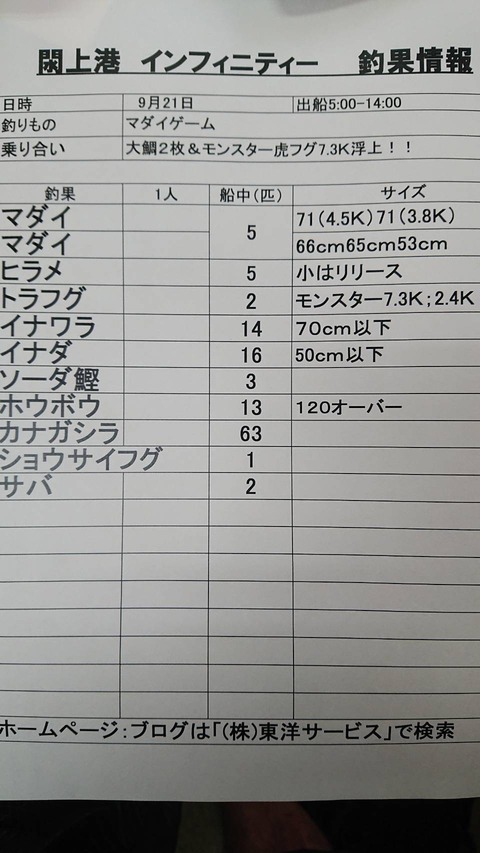 閖上港 インフィニティー 釣果情報
日時 9月21日 出船5:00-14:00
釣りもの マダイゲーム
乗り合い 大鯛2枚&モンスター虎フグ7.3K浮上!!
釣果 1人 船中(匹) サイズ
マダイ 5 71(4.5K)71(3.8K)
マダイ 66cm65cm53cm
ヒラメ 5 小はリリース
トラフグ 2 モンスター7.3K;2.4K
イナワラ 14 70cm以下
イナダ 16 50cm以下
ソーダ鰹 3
ホウボウ 13 120オーバー
カナガシラ 63
ショウサイフグ 1
サバ 2
ホームページ:ブログは「(株)東洋サービス」で検索